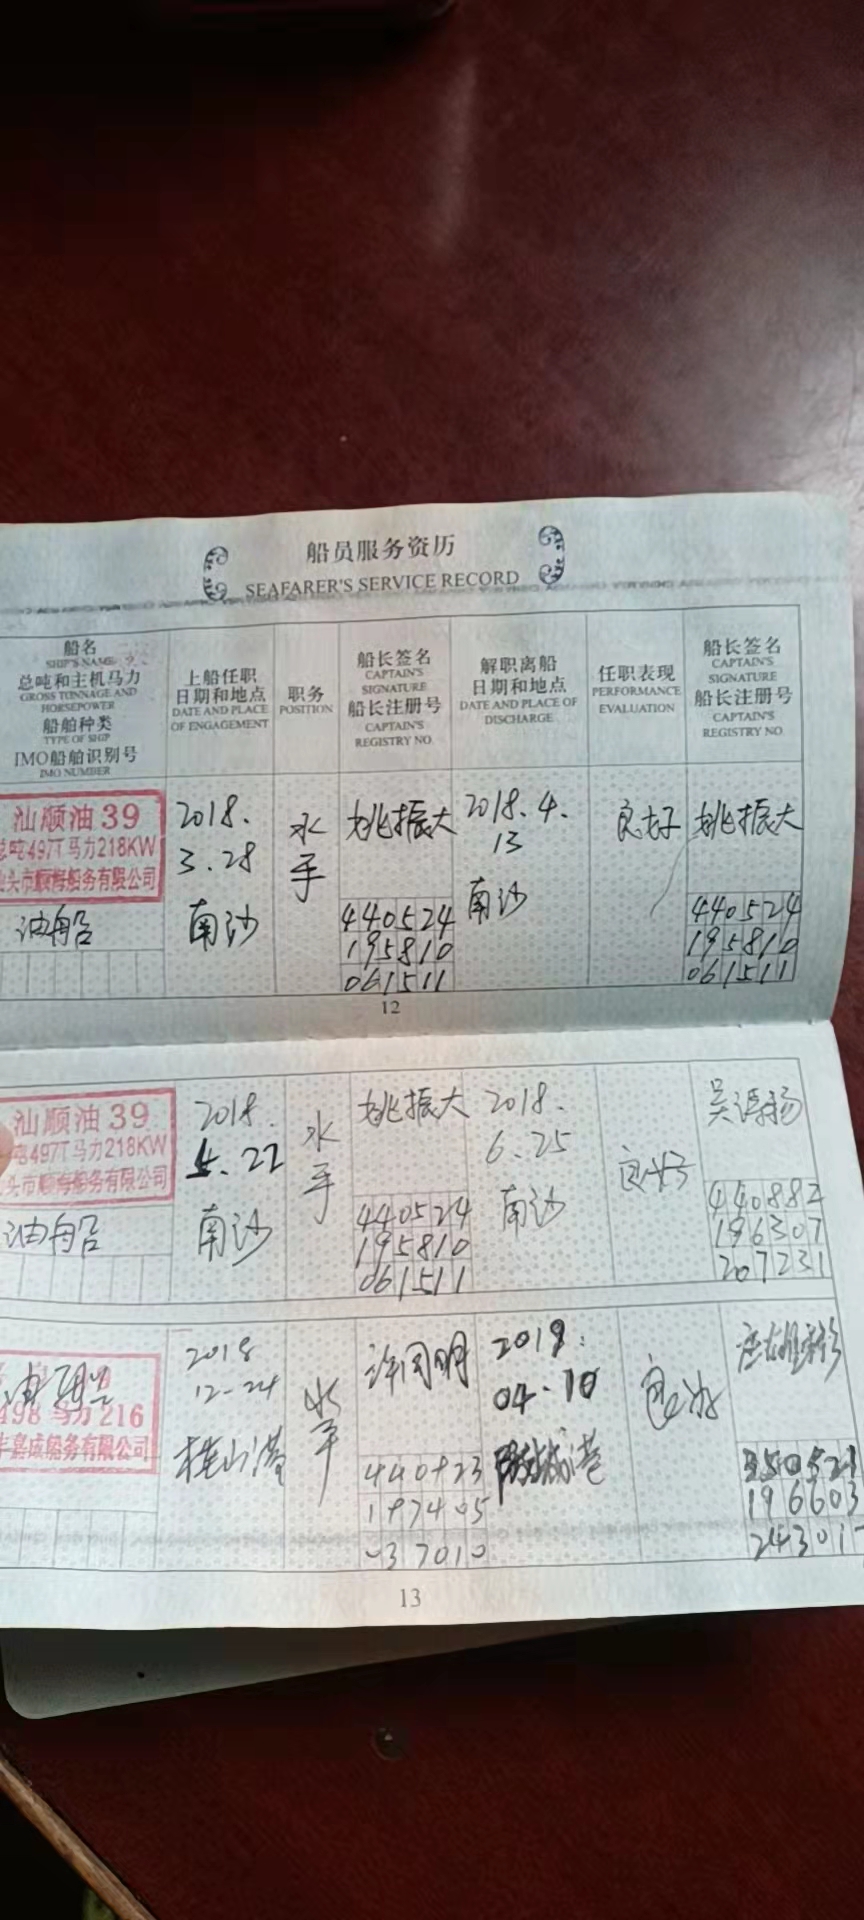 船员服务资历
SEAFARER'S SERVICE RECORD
船名
SHIP'S NAME
总吨和主机马力
GROSS TONNAGE AND
HORSEPOWER
船舶种类
TYPE OF SHIP
IMO船舶识别号
IMO NUMBER
上船任职
日期和地点
DATE AND PLACE
OF ENGAGEMENT
职务
POSITION
船长签名
CAPTAIN'S
SIGNATURE
船长注册号
CAPTAIN'S
REGISTRY NO.
解职离船
日期和地点
DATE AND PLACE OF
DISCHARGE
任职表现
PERFORMANCE
EVALUATION
船长签名
CAPTAIN'S
SIGNATURE
船长注册号
CAPTAIN'S
REGISTRY NO.
汕顺油39
总吨497T马力218KW
汕头市顺海船务有限公司
油船
2018.
3.28
南沙
水
手
姚振大
440524
195810
061511
2018.4.
13
南沙
良好
姚振大
440524
195810
061511
12
汕顺油39
吨497T马力218KW
头市顺海船务有限公司
油船
2018.
5.22
南沙
水
手
姚振大
440524
195810
061511
2018.
6.25
南沙
良好
440882
196307
207231
油船
498 马力 216
丰嘉成船务有限公司
2018
12-24
桂山港
水
手
许同明
440923
197405
037010
2019.
04.10
港
良好
350521
196603
243017
13